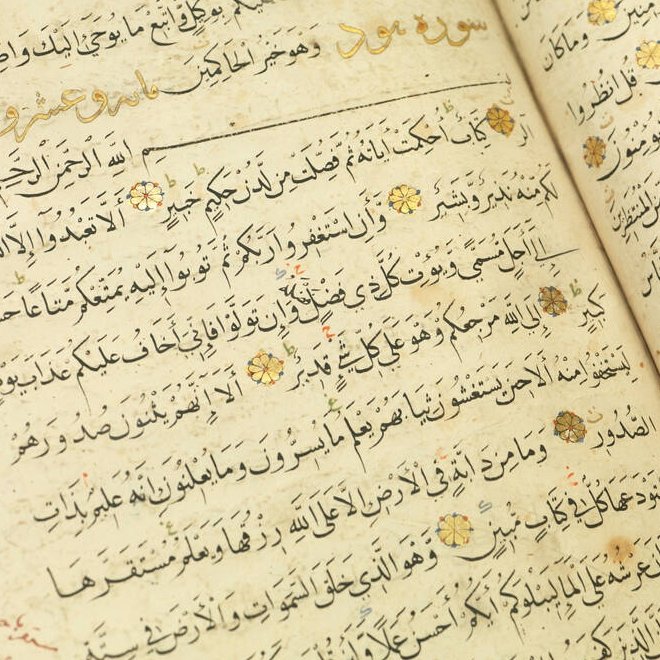 يوكل واتبع ما يوحى إليك واص
وهو خير الحاكمين
سورة هود
مائة وعشرو
بسم الله الرحمن الرحيم
الر كتاب أحكمت آياته ثم فصلت من لدن حكيم خبير ألا تعبدوا إلا الل
لكم منه نذير وبشير وأن استغفروا ربكم ثم توبوا إليه يمتعكم متاعا حس
إلى أجل مسمى ويؤت كل ذي فضل فضله وإن تولوا فإني أخاف عليكم عذاب يوم
كبير إلى الله مرجعكم وهو على كل شيء قدير ألا إنهم يثنون صدورهم
ليستخفوا منه ألا حين يستغشون ثيابهم يعلم ما يسرون وما يعلنون إنه عليم بذات
الصدور وما من دابة في الأرض إلا على الله رزقها ويعلم مستقرها
كل في كتاب مبين وهو الذي خلق السموات والأرض في ستة
عرشه على الما ليبلوكم أيكم أحسن عملا ولئن قلت
الذين كفر
وما كان
قل انظروا
يؤمنون